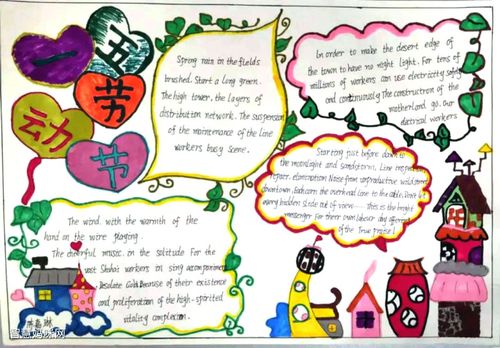 五一
劳
动
节
Spring rain in the fields
brushed. Start a long green.
The high tower. the layers of
distribution network. The suspension
of the maintenance of the line
workers busy scene.
In order to make the desert edge of
the town to have no night light. For tens of
millions of workers can use electricity safely
and continuously The construction of the
motherland go. Our
electrical workers
Starting just before dawn to
the moonlight and sandstorm. Line inspection
repair. elimination Noise from unproductive
downtown. Each corn the overhead line to the cable.
every hidden side out of view... This is the bright
messenger For their own labour day offering
of the True praise!
The wind with the warmth of the
hand on the wire playing.
The cheerful music in the solitude For the
vast workers in sing accompaniment
Desolate Gobi Because of their existence
and proliferation of the high-spirited
vitality complexion.
智慧妈咪网